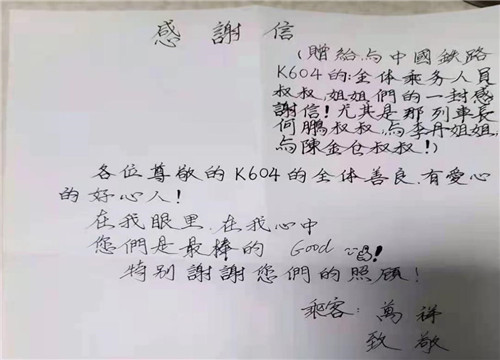 感謝信
(贈給与中國鉄路
K604的:全体乘务人員
叔叔,姐姐們的一封感
謝信!尤其是那列車長
何鵬叔叔,与李丹姐姐,
与陳金仓叔叔!)
各位尊敬的K604的全体善良.有愛心
的好心人!
在我眼里.在我心中
您們是最棒的 Good !
特别謝謝您們的照顾!
乘客:萬祥
致敬